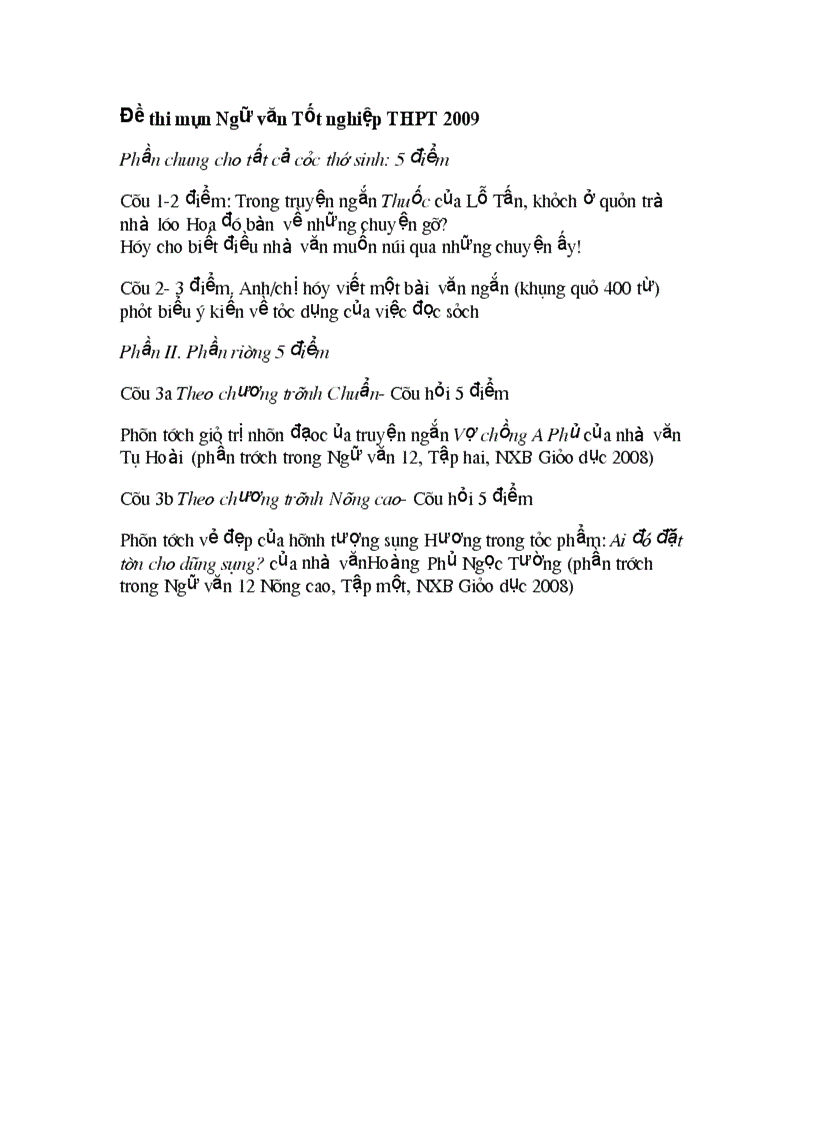 Đề thi mụn Ngữ văn Tốt nghiệp THPT 2009
Phần chung cho tất cả cỏc thớ sinh: 5 điểm
Cõu 1-2 điểm: Trong truyện ngắn Thuốc của Lỗ Tấn, khỏch ở quỏn trà
nhà lóo Hoa đó bàn về những chuyện gỡ?
Hóy cho biết điều nhà văn muốn núi qua những chuyện ấy!
Cõu 2- 3 điểm, Anh/chị hóy viết một bài văn ngắn (khụng quỏ 400 từ)
phỏt biểu ý kiến về tỏc dụng của việc đọc sỏch
Phần II. Phần riờng 5 điểm
Cõu 3a Theo chương trỡnh Chuẩn- Cõu hỏi 5 điểm
Phõn tớch giỏ trị nhõn đạoc ủa truyện ngắn Vợ chồng A Phủ của nhà văn
Tụ Hoài (phần trớch trong Ngữ văn 12, Tập hai, NXB Giỏo dục 2008)
Cõu 3b Theo chương trỡnh Nõng cao- Cõu hỏi 5 điểm
Phõn tớch vẻ đẹp của hỡnh tượng sụng Hương trong tỏc phẩm: Ai đó đặt
tờn cho dũng sụng? của nhà vănHoàng Phủ Ngọc Tường (phần trớch
trong Ngữ văn 12 Nõng cao, Tập một, NXB Giỏo dục 2008)